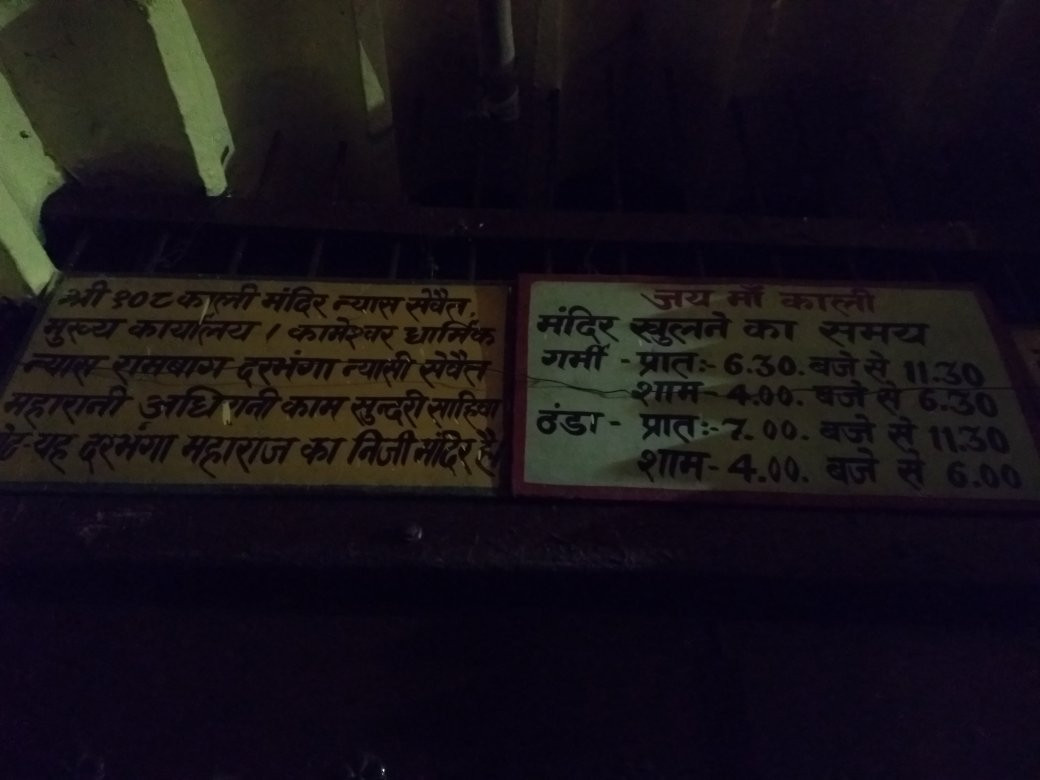 श्री १०८ काली मंदिर न्यास सेवैत,
मुख्य कार्यालय / कामेश्वर धार्मिक
न्यास रामबाग दरभंगा न्यासी सेवैत
महारानी अधिरानी काम सुन्दरी साहिबा
यह दरभंगा महाराज का निजी मंदिर है
जय माँ काली
मंदिर खुलने का समय
गर्मी - प्रातः- 6.30. बजे से 11.30
शाम- 4.00. बजे से 6.30
ठंडा - प्रातः- 7.00. बजे से 11.30
शाम- 4.00. बजे से 6.00